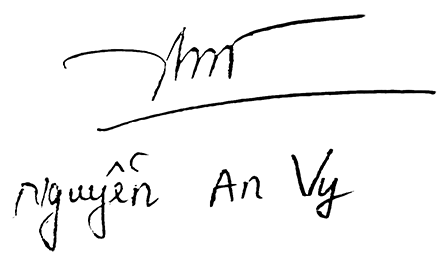 Nguyễn An Vy